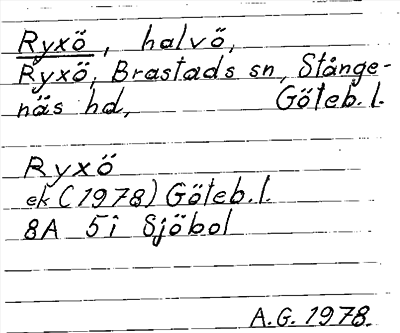 Ryxö, halvö,
Ryxö, Brastads sn, Stånge-
näs hd, Göteb. l.
Ryxö
ek (1978) Göteb. l.
8A 5i Sjöbol
A.G. 1978.